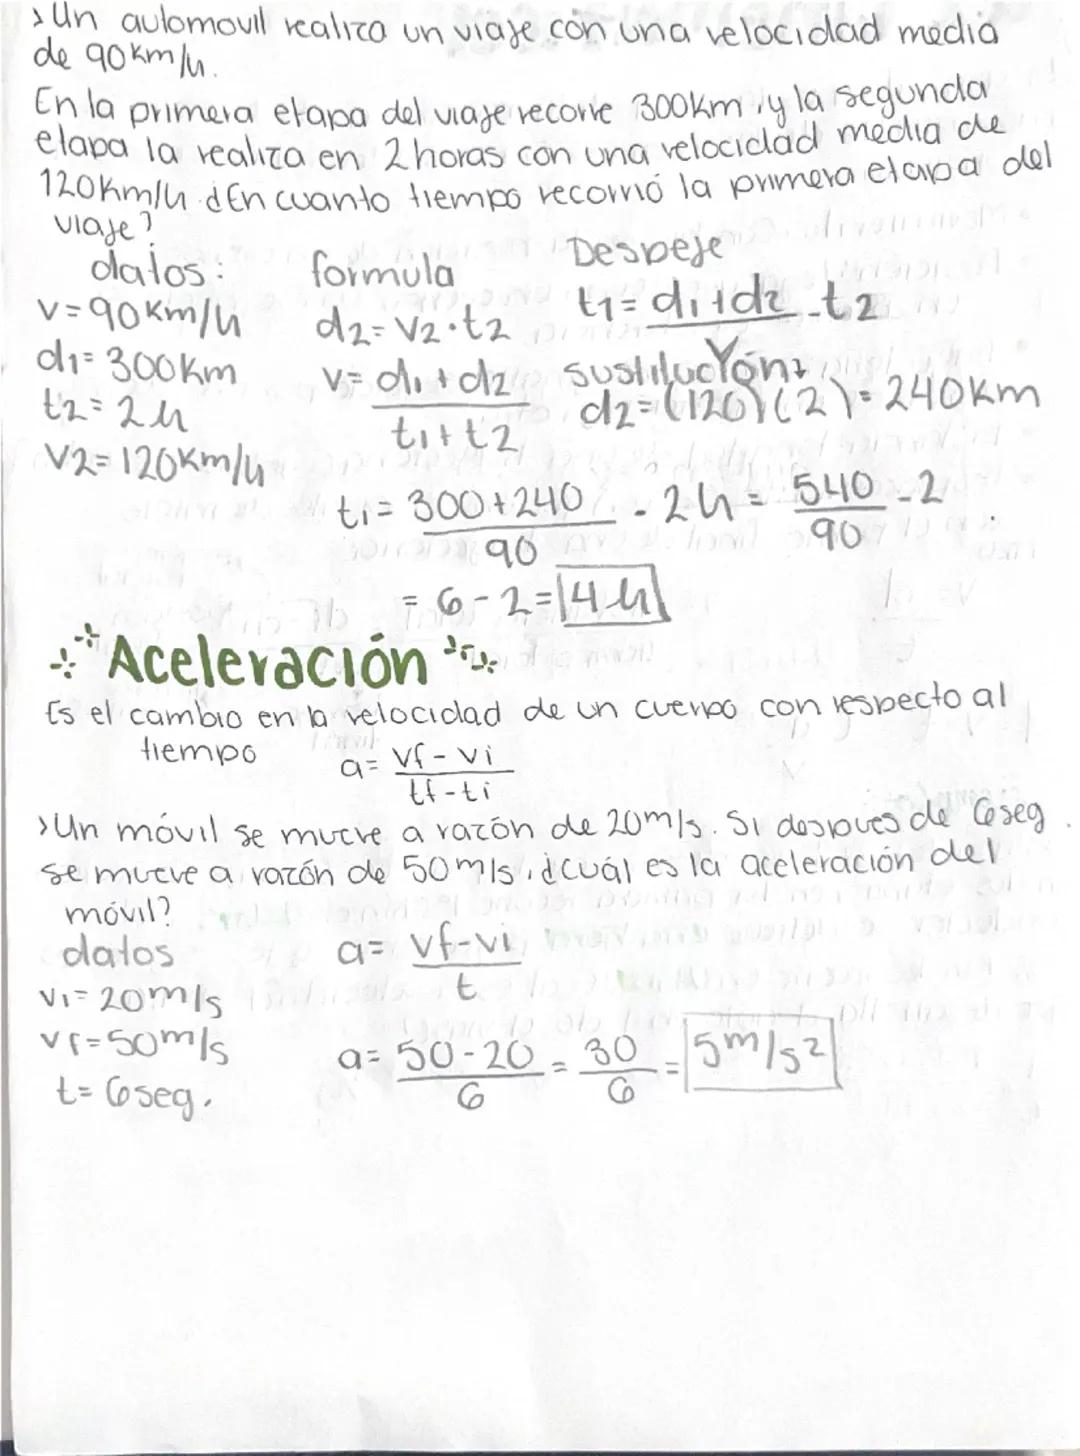 ›Un automovil realiza un viaje con una velocidad media
de 90km/h.
En la primera etapa del viaje recorre 300km, y la segunda
etapa la realiza en 2 horas con una velocidad media de
120km/h. ¿En cuanto tiempo recorrió la primera etapa del
viaje?
datos:
v=90km/h
d1=300km
t2=2h
V2=120km/h
formula
d2=V2·t2
v=d1+d2
t1+t2
Despeje
t1=d1+d2 -t2
V
sustitución:
d2=(120)(2)=240km
t1=300+240 -2h=540 -2
90 90
=6-2=4h
Aceleración
Es el cambio en la velocidad de un cuerpo con respecto al
tiempo
a=vf-vi
tf-ti
›Un móvil se mueve a razón de 20m/s. Si después de 6seg.
se mueve a razón de 50m/s, ¿cuál es la aceleración del
móvil?
datos
vi=20m/s
vf=50m/s
t=6seg.
a=vf-vi
t
a=50-20=30=5m/s²
6 6